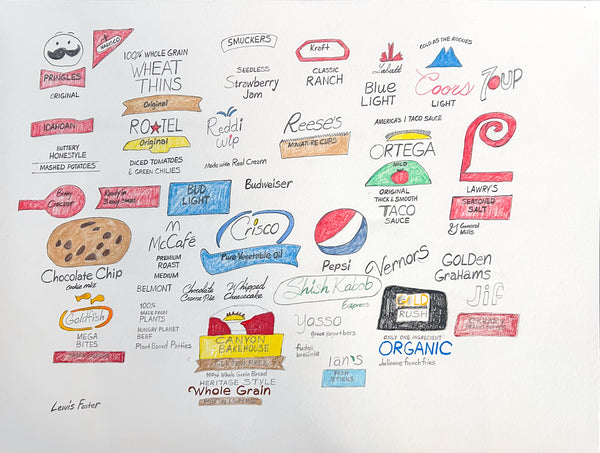 PRINGLES
ORIGINAL
NABISCO
100% WHOLE GRAIN
WHEAT
THINS
Original
SMUCKERS
SEEDLESS
Strawberry
Jam
Kraft
CLASSIC
RANCH
Labatt
Blue
LIGHT
COLD AS THE ROCKIES
Coors
LIGHT
7UP
IDAHOAN
BUTTERY
HOMESTYLE
MASHED POTATOES
RO★TEL
Original
DICED TOMATOES
& GREEN CHILIES
Reddi
wip
Made with Real Cream
Reese's
MINIATURE CUPS
AMERICA'S 1 TACO SAUCE
ORTEGA
MILD
ORIGINAL
THICK & SMOOTH
TACO
SAUCE
LAWRY'S
SEASONED
SALT
By General
Mills
Betty
Crocker
BUD
LIGHT
Budweiser
Chocolate Chip
cookie mix
McCafé
PREMIUM
ROAST
MEDIUM
Crisco
Pure Vegetable Oil
Pepsi
Vernors
GOLDen
GraHams
BELMONT
Chocolate
Creme Pie
Whipped
Cheesecake
Shish Kabob
Express
GOLD
RUSH
Jif
CREAMY
Goldfish
MEGA
BITES
100%
MADE FROM
PLANTS
HUNGRY PLANET
BEEF
Plant Based Patties
CANYON
BAKEHOUSE
GLUTEN FREE
100% Whole Grain Bread
HERITAGE STYLE
Whole Grain
Yasso
Greek yogurt bars
fudge
brownie
Ian's
FISH
STICKS
ONLY ONE INGREDIENT
ORGANIC
Julienne french fries
Lewis Foster